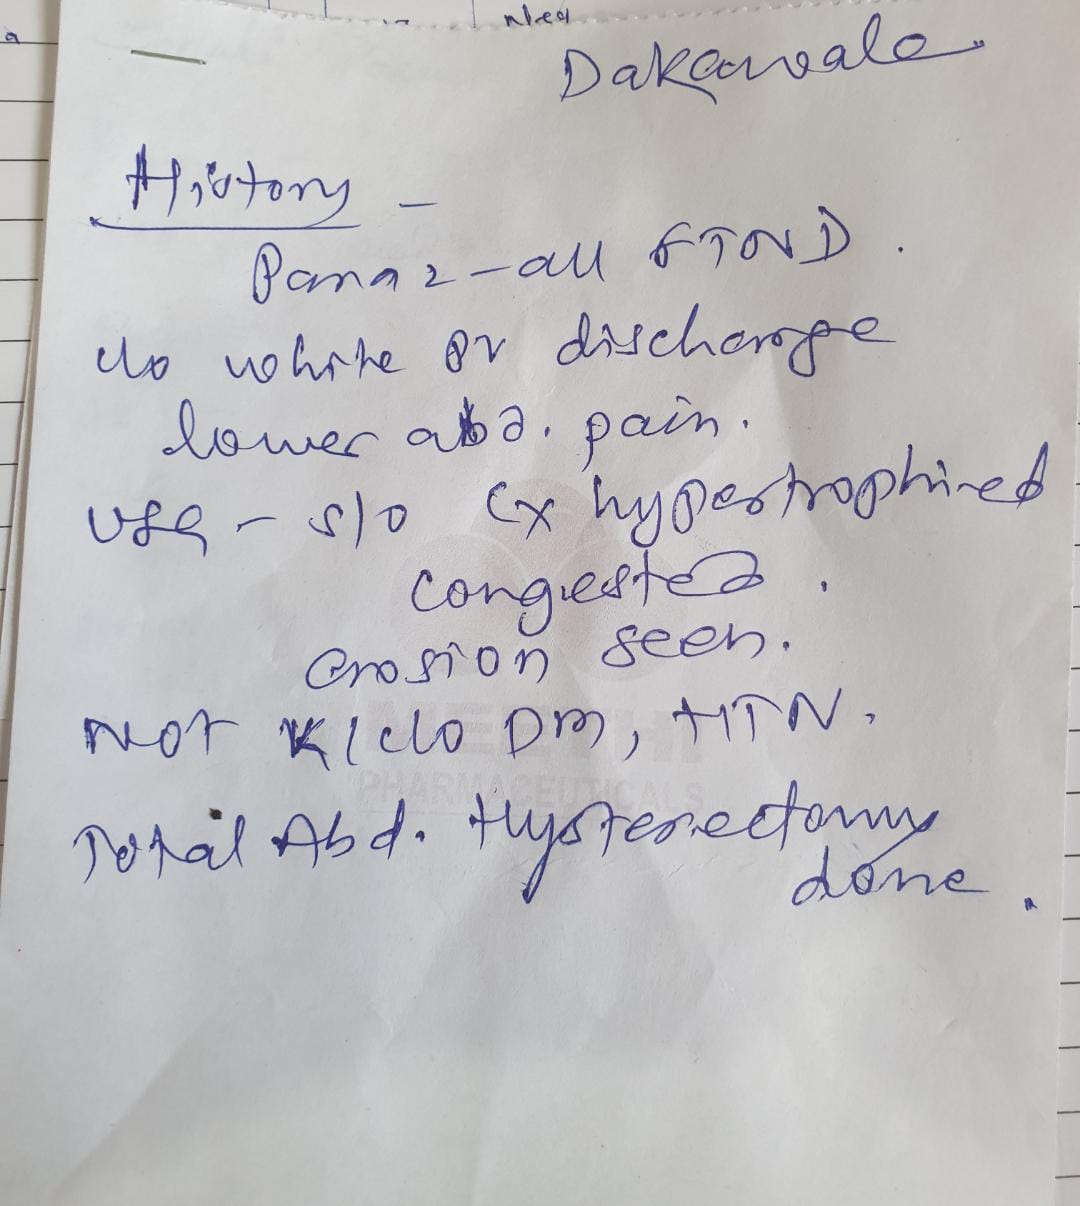 Dakawala
History -
Para 2 - all FTND.
c/o white PV discharge
lower abd. pain.
USG - s/o Cx hypertrophied
congested.
erosion seen.
Not K/c/o DM, HTN.
MEETHI
PHARMACEUTICALS
Total Abd. Hysterectomy
done.